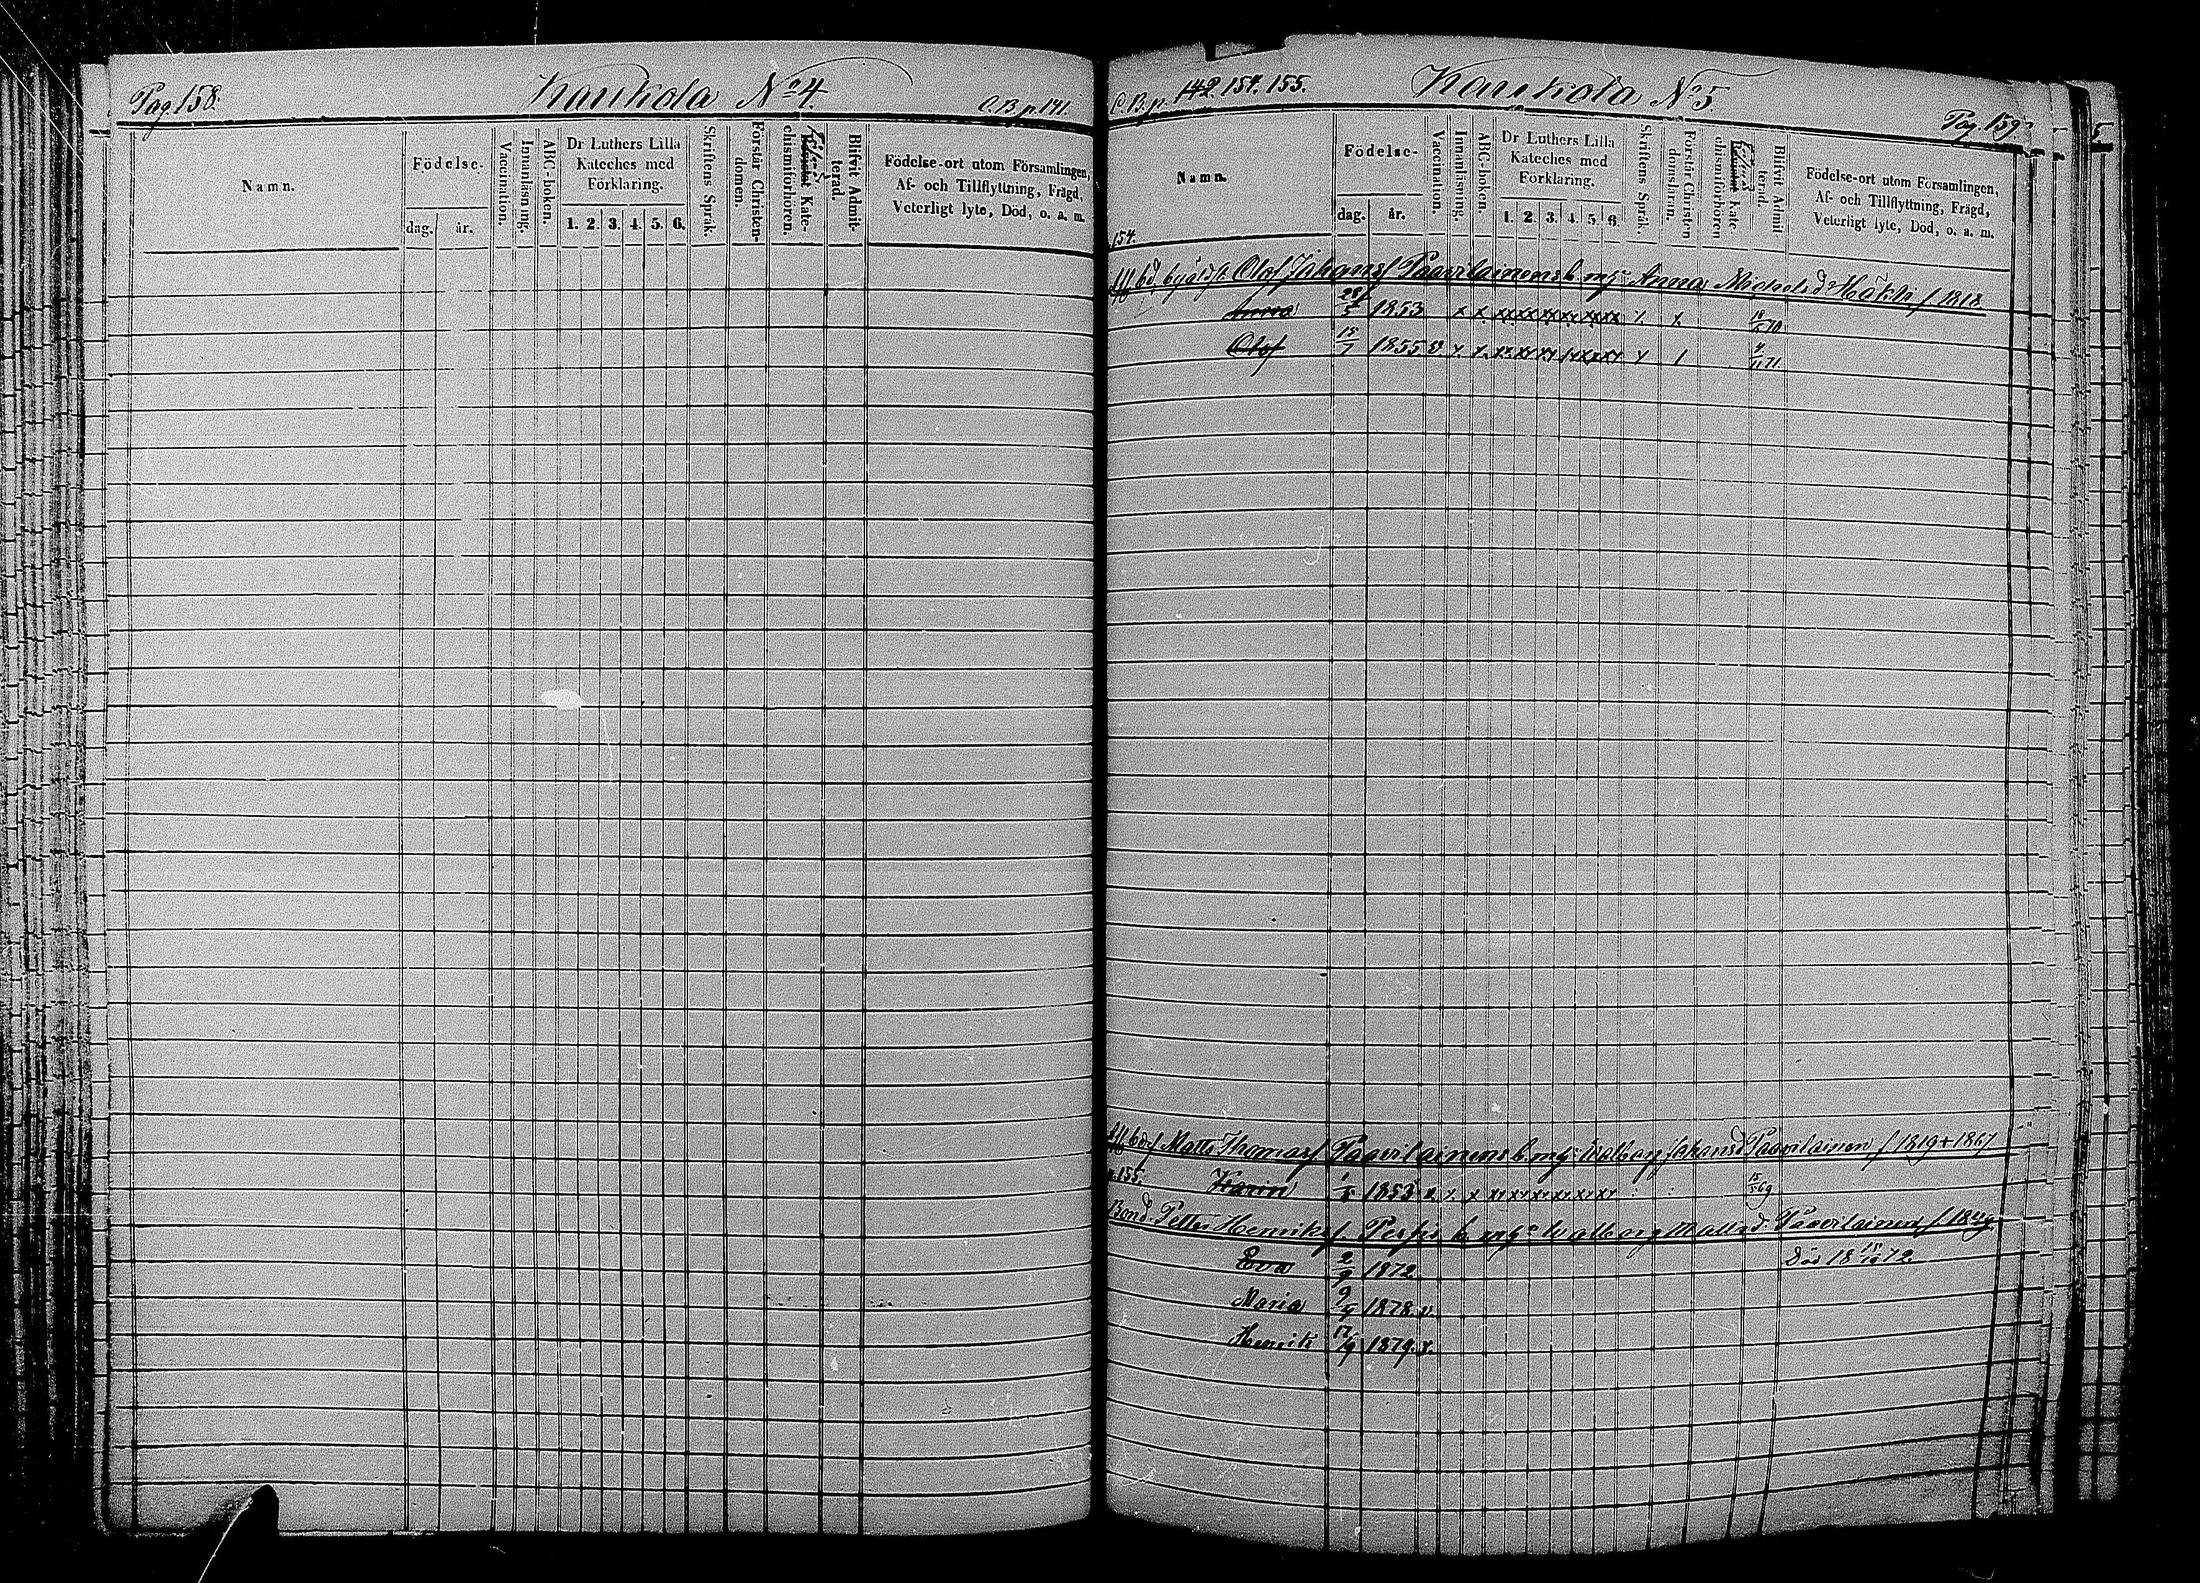 Pag. 158.
Kaukola No 4.
C.B.p. 141.
Namn.
Födelse-
dag. år.
Vaccination.
Innanläsning.
ABC-boken.
Dr Luthers Lilla Kateches med Förklaring.
1. 2. 3. 4. 5. 6.
Skriftens Språk.
Förstår Christendomen.
Kate-chismiförhören.
Blifvit Admit-terad.
Födelse-ort utom Församlingen,
Af- och Tillflyttning, Frägd,
Veterligt lyte, Död, o. a. m.
C.B.p. 142. 154. 155.
Kaukola No 5
Pag. 159
Namn.
Födelse-
dag. år.
Vaccination.
Innanläsning.
ABC-boken.
Dr Luthers Lilla Kateches med Förklaring.
1. 2. 3. 4. 5. 6.
Skriftens Språk.
Förstår Christendomsläran.
Kate-chismiförhören
Blifvit Admit-terad.
Födelse-ort utom Församlingen,
Af- och Tillflyttning, Frägd,
Veterligt lyte, Död, o. a. m.
154.
Olof Johansf Paavilainens b. mf: Anna Mickelsd Häkli f 1818
1853 x x xx xx xx xx xx xx x x
Olof 15/7 1855 v x x xx xx xx xx xx xx x 1 4/11 71.
Matts Thomasf Paavilainens b. mf: Walborg Johansd Paavilainen f 1819 + 1867
p. 155. Karin 1853 x x x xx xx xx xx xx xx 15/5 69
Bond. Petter Henriksf. b. mf: Walborg Mattsd. Paavilainen f 1849
Eva 2/9 1872 Död 18 72.
Maria 9/4 1878. v.
Henrik 17/9 1879. x.